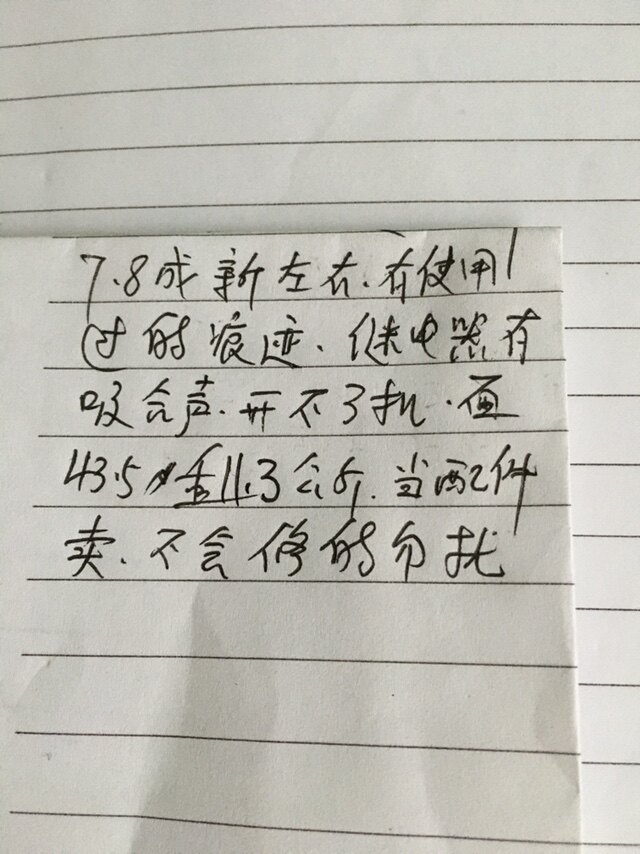 7.8成新左右.有使用
过的痕迹.继电器有
吸合声.开不了机.面
43.5重11.3公斤.当配件
卖.不会修的勿扰